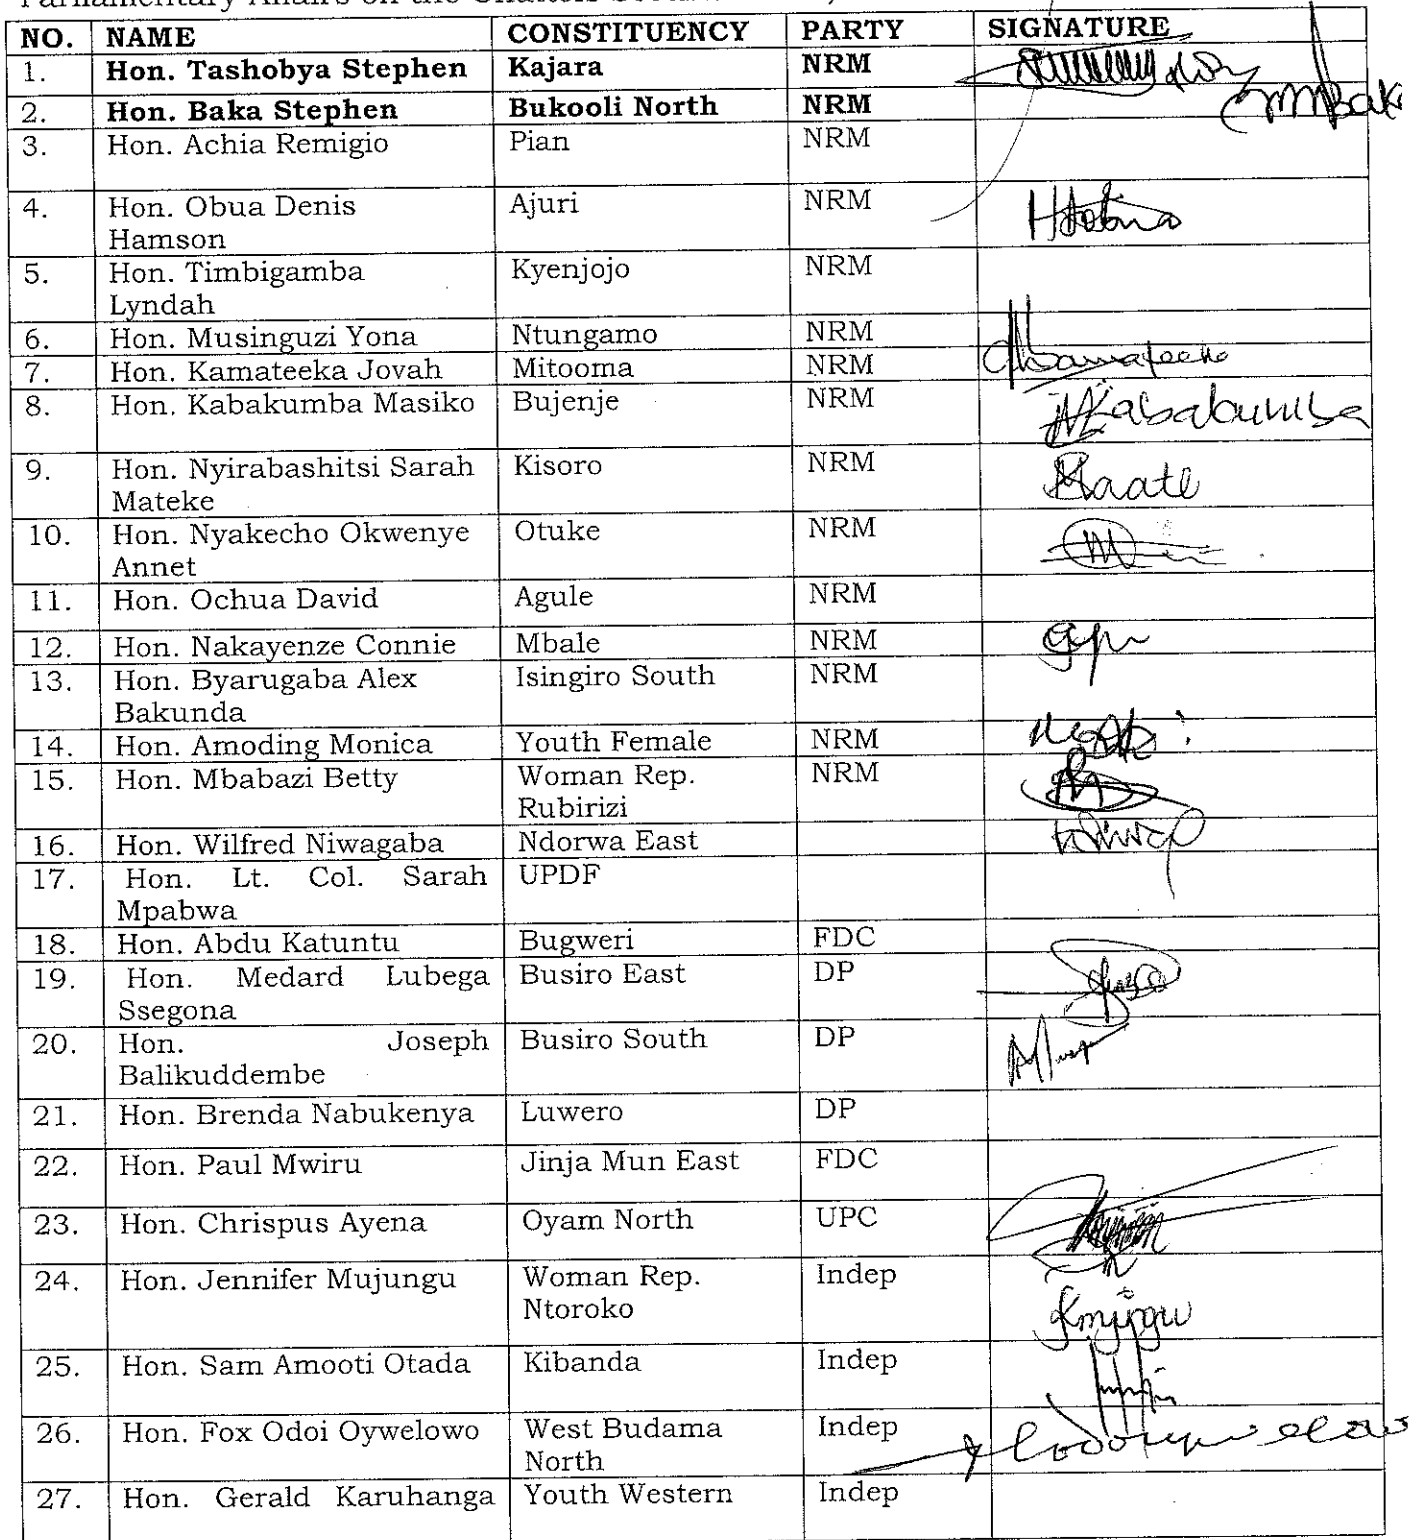 NO. NAME CONSTITUENCY PARTY SIGNATURE
1. Hon. Tashobya Stephen Kajara NRM
2. Hon. Baka Stephen Bukooli North NRM
3. Hon. Achia Remigio Pian NRM
4. Hon. Obua Denis Ajuri NRM
Hamson
5. Hon. Timbigamba Kyenjojo NRM
Lyndah
6. Hon. Musinguzi Yona Ntungamo NRM
7. Hon. Kamateeka Jovah Mitooma NRM
8. Hon. Kabakumba Masiko Bujenje NRM
9. Hon. Nyirabashitsi Sarah Kisoro NRM
Mateke
10. Hon. Nyakecho Okwenye Otuke NRM
Annet
11. Hon. Ochua David Agule NRM
12. Hon. Nakayenze Connie Mbale NRM
13. Hon. Byarugaba Alex Isingiro South NRM
Bakunda
14. Hon. Amoding Monica Youth Female NRM
15. Hon. Mbabazi Betty Woman Rep. NRM
Rubirizi
16. Hon. Wilfred Niwagaba Ndorwa East
17. Hon. Lt. Col. Sarah UPDF
Mpabwa
18. Hon. Abdu Katuntu Bugweri FDC
19. Hon. Medard Lubega Busiro East DP
Ssegona
20. Hon. Joseph Busiro South DP
Balikuddembe
21. Hon. Brenda Nabukenya Luwero DP
22. Hon. Paul Mwiru Jinja Mun East FDC
23. Hon. Chrispus Ayena Oyam North UPC
24. Hon. Jennifer Mujungu Woman Rep. Indep
Ntoroko
25. Hon. Sam Amooti Otada Kibanda Indep
26. Hon. Fox Odoi Oywelowo West Budama Indep
North
27. Hon. Gerald Karuhanga Youth Western Indep